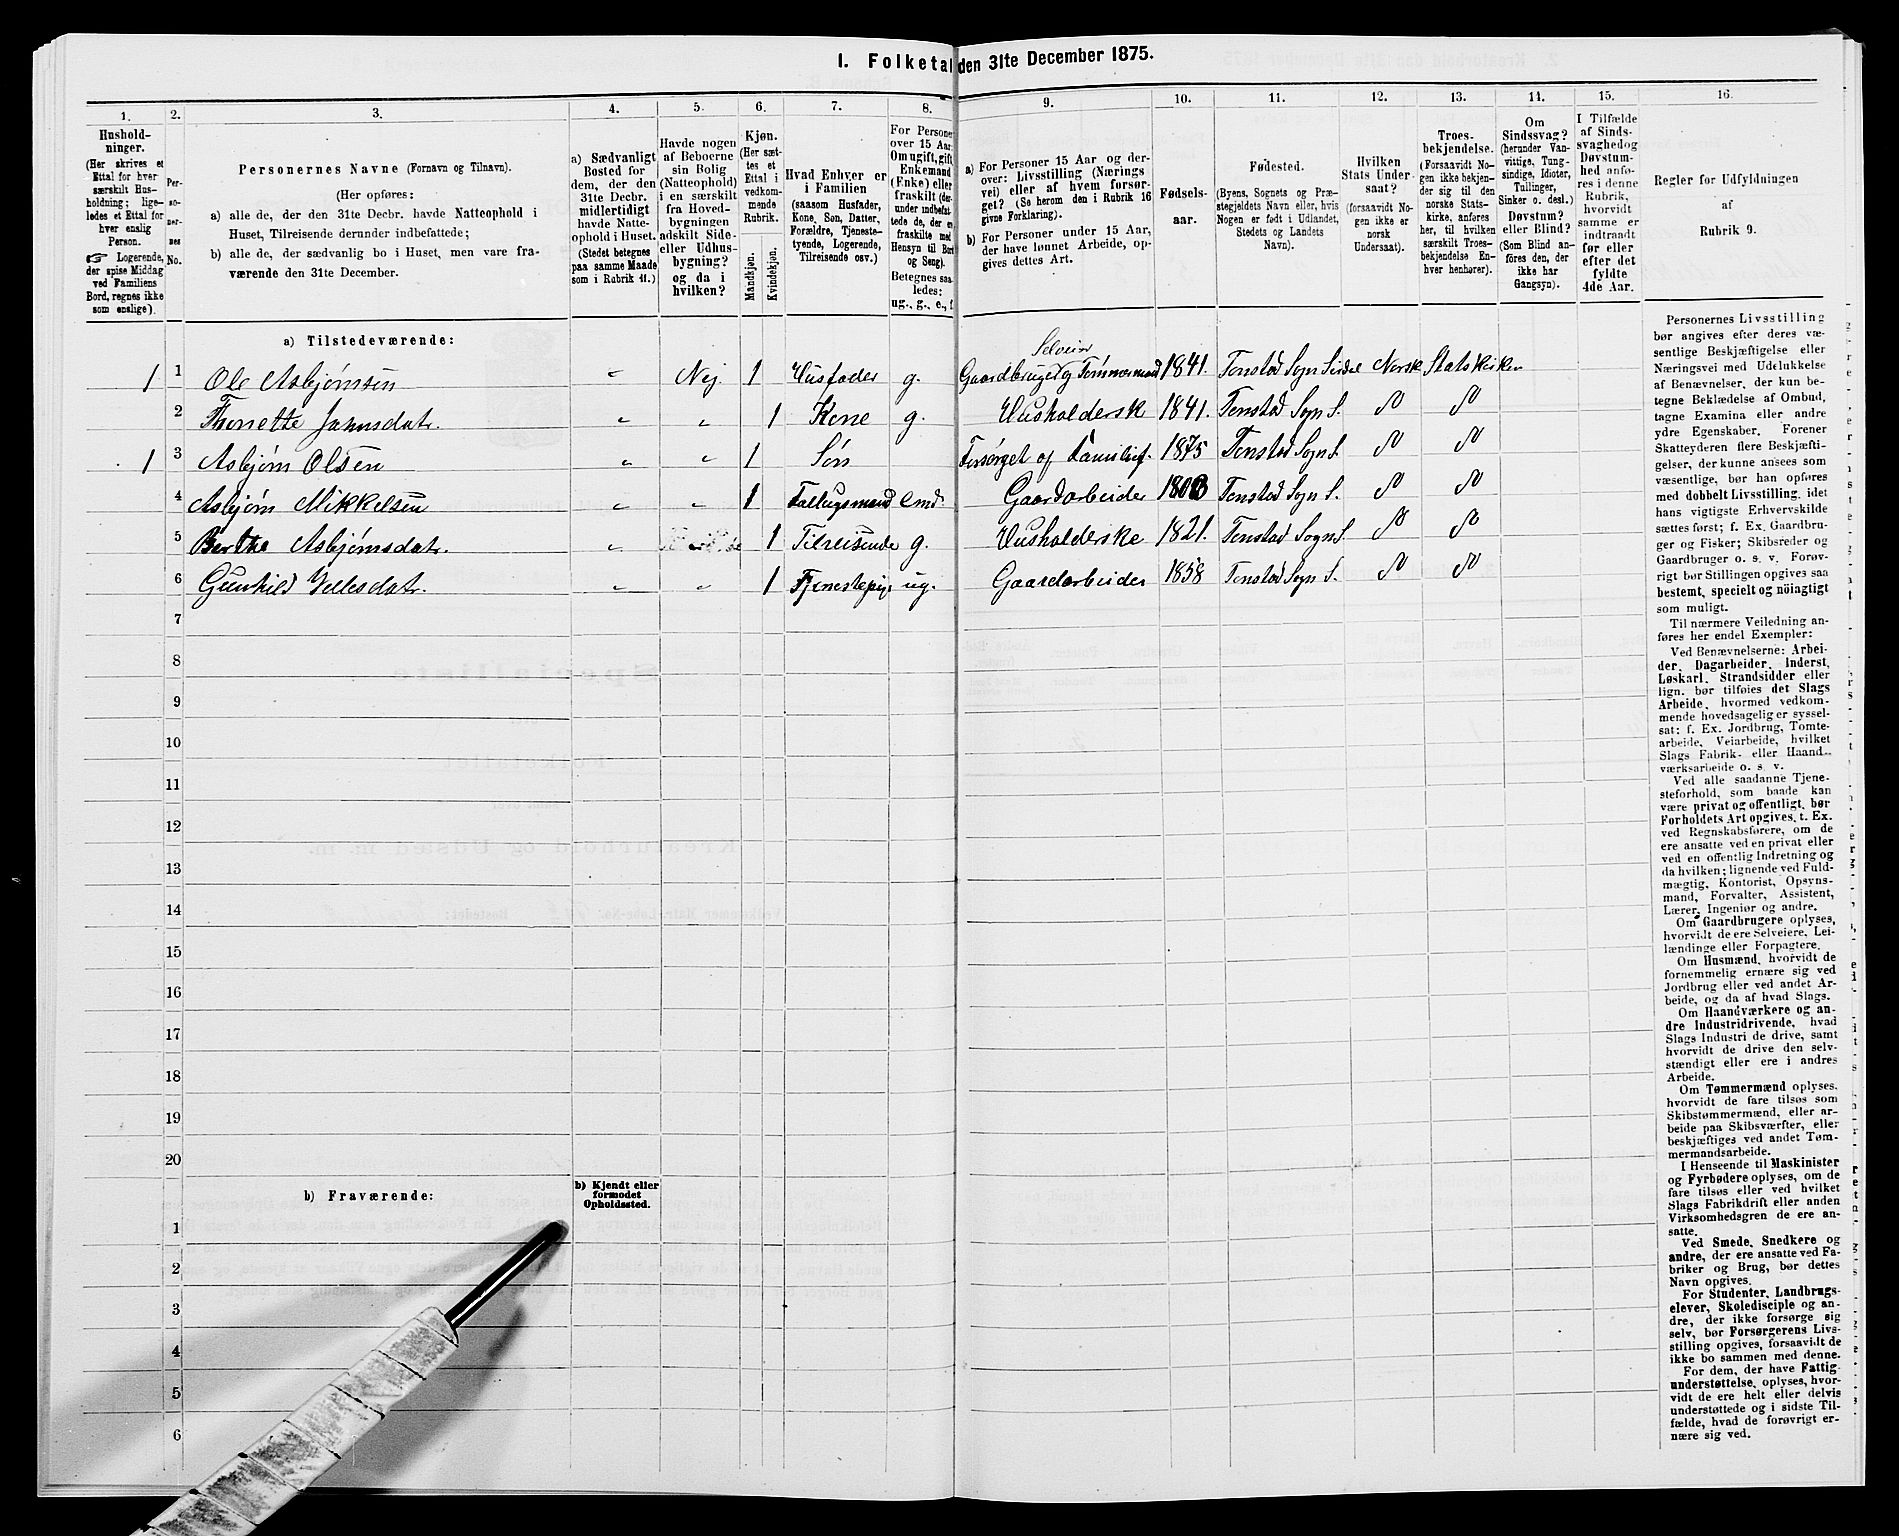 I. Folketal den 31te December 1875.
1. 2. 3. 4. 5. 6. 7. 8. 9. 10. 11. 12. 13. 14. 15. 16.
Hushold-
ninger.
(Her skrives et
Ettal for hver
særskilt Hus-
holdning; lige-
ledes et Ettal for
hver enslig
Person.
☞ Logerende,
der spise Middag
ved Familiens
Bord, regnes ikke
som enslige).
Per-
so-
ner-
nes
No.
Personernes Navne (Fornavn og Tilnavn).
(Her opføres:
a) alle de, der den 31te Decbr. havde Natteophold i
Huset, Tilreisende derunder indbefattede;
b) alle de, der sædvanlig bo i Huset, men vare fra-
værende den 31te December.
a) Sædvanligt
Bosted for
dem, der den
31te Decbr.
midlertidigt
havde Natte-
ophold i Huset.
(Stedet betegnes
paa samme Maade
som i Rubrik 11.)
Havde nogen
af Beboerne
sin Bolig
(Natteophold)
i en særskilt
fra Hoved-
bygningen
adskilt Side-
eller Udhus-
bygning?
og da i
hvilken?
Kjøn.
(Her sæt-
tes et
Ettal i
vedkom-
mende
Rubrik.
Mandkjøn.
Kvindekjøn.
Hvad Enhver er
i Familien
(saasom Husfader,
Kone, Søn, Datter,
Forældre, Tjeneste-
tyende, Logerende,
Tilreisende osv.)
For Persone
over 15 Aar:
Om ugift, gift,
Enkemand
(Enke) eller
fraskilt (der-
under indbefat-
tede de, der er
fraskilte med
Hensyn til Bord
og Seng).
Betegnes saa-
ledes:
ug., g., e., f
a) For Personer 15 Aar og der-
over: Livsstilling (Nærings
vei) eller af hvem forsør-
get? (Se herom den i Rubrik 16
givne Forklaring).
b) For Personer under 15 Aar,
der have lønnet Arbeide, op-
gives dettes Art.
Fødsels-
aar.
Fødested.
(Byens, Sognets og Præ-
stegjeldets Navn eller, hvis
Nogen er født i Udlandet,
Stedets og Landets
Navn).
Hvilken
Stats Under
saat?
(forsaavidt No-
gen ikke er
norsk
Undersaat).
Troes-
bekjendelse.
(Forsaavidt No-
gen ikke bekjen-
der sig til den
norske Stats-
kirke, anføres
her, til hvilken
særskilt Troes-
bekjendelse En-
hver henhører).
Om
Sindssvag?
(herunder Van-
vittige, Tung-
sindige, Idioter,
Tullinger,
Sinker o. desl.)
Døvstum?
eller Blind?
(Som Blind an-
føres den, der
ikke har
Gangsyn).
I Tilfælde
af Sinds-
svaghedog
Døvstum-
hed anfø-
res i denne
Rubrik,
hvorvidt
samme er
indtraadt
før eller
efter det
fyldte
4de Aar.
Regler for Udfyldningen
af
Rubrik 9.
a) Tilstedeværende:
Selveier
1 1 Ole Asbjørnsen " Nej 1 Husfader g. Gaardbruger og Tømmermand 1841. Tonstad Sogn Sirdal Norsk Statskirken
2 Thonette Jansdatr. " " 1 Kone g. Husholdersk 1841. Tonstad Sogn S.
1 3 Asbjørn Olsen " " 1 Søn Forsørget af Familief. 1875 Tonstad Sogn S.
4 Asbjørn Mikkelsen " " 1 emd. Gaardarbeider Tonstad Sogn S.
5 Berthe Asbjørnsdatr. " 1 Tilreisende g. Husholderske 1821. Tonstad Sogn S.
6 Gunhild " " 1 Tjenestepig. ug. Gaardarbeider 1858 Tonstad Sogn S.
7
8
9
10
11
12
13
14
15
16
17
18
19
20
b) Fraværende:
b) Kjendt eller
formodet
Opholdssted.
1
2
3
4
5
6
Personernes Livsstilling
bør angives efter deres væ-
sentlige Beskjæftigelse eller
Næringsvei med Udelukkelse
af Benævnelser, der kun be-
tegne Beklædelse af Ombud,
tagne Examina eller andre
ydre Egenskaber. Forener
Skatteyderen flere Beskjæfti-
gelser, der kunne ansees som
væsentlige, bør han opføres
med dobbelt Livsstilling, idet
hans vigtigste Erhvervskilde
sættes først; f. Ex. Gaardbru-
ger og Fisker; Skibsreder og
Gaardbruger o. s. v. Forøv-
rigt bør Stillingen opgives saa
bestemt, specielt og nöiagtigt
som muligt.
Til nærmere Veiledning an-
føres her endel Exempler:
Ved Benævnelserne: Arbei-
der, Dagarbeider, Inderst,
Løskarl, Strandsidder eller
lign. bør tilføies det Slags
Arbeide, hvormed vedkom-
mende hovedsagelig er syssel-
sat; f. Ex. Jordbrug, Tomte-
arbeide, Veiarbeide, hvilket
Slags Fabrik- eller Haand-
værksarbeide o. s. v.
Ved alle saadanne Tjene-
steforhold, som baade kan
være privat og offentligt, bør
Forholdets Art opgives, t. Ex.
ved Regnskabsførere, om de
ere ansatte ved en privat eller
ved en offentlig Indretning og
da hvilken; lignende ved Fuld-
mægtig, Kontorist, Opsyns-
mand, Forvalter, Assistent,
Lærer, Ingeniør og andre.
Om Gaardbrugere oplyses,
hvorvidt de ere Selveiere, Lei-
lændinge eller Forpagtere.
Om Husmænd, hvorvidt de
fornemmelig ernære sig ved
Jordbrug eller ved andet Ar-
beide, og da af hvad Slags.
Om Haandværkere og an-
dre Industridrivende, hvad
Slags Industri de drive, samt
hvorvidt de drive den selv-
stændigt eller ere i andres
Arbeide.
Om Tømmermænd oplyses,
hvorvidt de fare tilsøs som
Skibstømmermænd, eller ar-
beide paa Skibsværfter, eller
beskjæftiges ved andet Tøm-
mermandsarbeide.
I Henseende til Maskinister
og Fyrbødere oplyses, om de
fare tilsøs eller ved hvilket
Slags Fabrikdrift eller anden
Virksomhedsgren de ere an-
satte.
Ved Smede, Snedkere og
andre, der ere ansatte ved Fa-
briker og Brug, bør dettes
Navn opgives.
For Studenter, Landbrugs-
elever, Skoledisciple og an-
dre, der ikke forsørge sig
selv, bør Forsørgerens Livs-
stilling opgives, forsaavidt de
ikke bo sammen med denne.
For dem, der have Fattig-
understøttelse, oplyses, hvor-
vidt de ere helt eller delvis
understøttede og i sidste Til-
fælde, hvad de forøvrigt er-
nære sig ved.